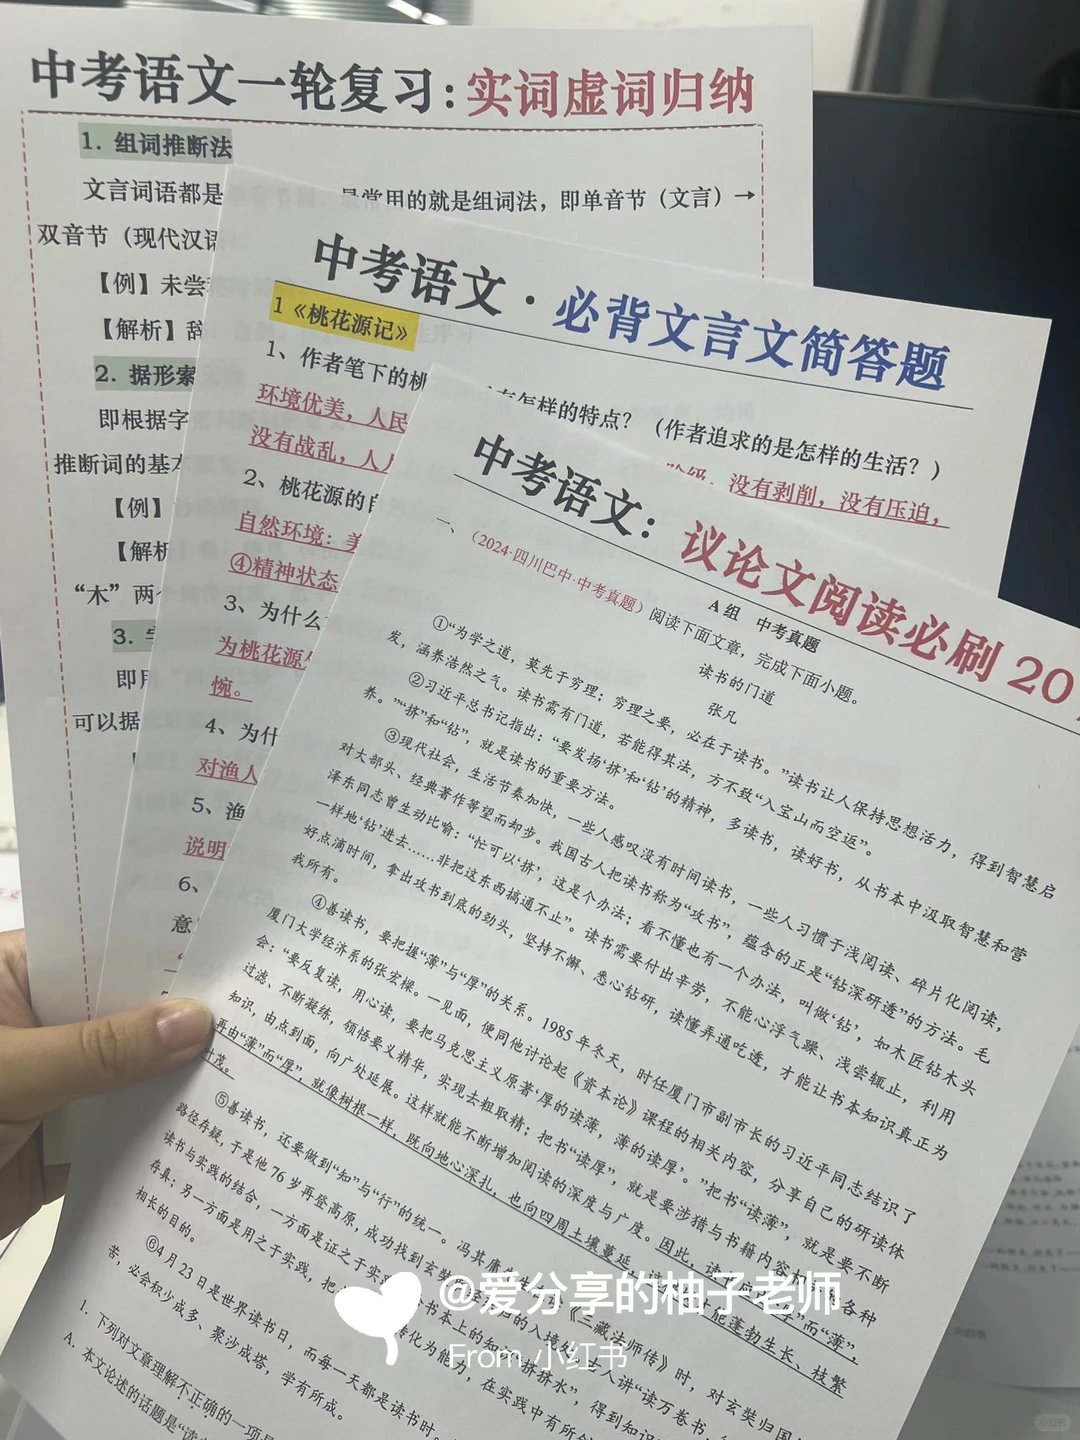 中考语文一轮复习：实词虚词归纳
1. 组词推断法
文言词语都是 最常用的就是组词法，即单音节（文言）→
双音节（现代汉语
【例】未尝
【解析】辞
2. 据形索
即根据字
推断词的基本
【例】
【解析
“木”两
3.
即用
可以据
中考语文·必背文言文简答题
1《桃花源记》
1、作者笔下的桃 有怎样的特点？（作者追求的是怎样的生活？）
环境优美，人民 阶级，没有剥削，没有压迫，
没有战乱，人人
2、桃花源的自
自然环境：美
④精神状态
3、为什么
为桃花源
惋。
4、为什
对渔人
5、渔
说明
6、
意
中考语文：议论文阅读必刷 20
A 组 中考真题
一、（2024·四川巴中·中考真题）阅读下面文章，完成下面小题。
读书的门道
张凡
①“为学之道，莫先于穷理；穷理之要，必在于读书。”读书让人保持思想活力，得到智慧启
发，涵养浩然之气。读书需有门道，若能得其法，方不致“入宝山而空返”。
②习近平总书记指出：“要发扬‘挤’和‘钻’的精神，多读书，读好书，从书本中汲取智慧和营
养。”“挤”和“钻”，就是读书的重要方法。
③现代社会，生活节奏加快，一些人感叹没有时间读书，一些人习惯于浅阅读、碎片化阅读，
对大部头、经典著作等望而却步。我国古人把读书称为“攻书”，蕴含的正是“钻深研透”的方法。毛
泽东同志曾生动比喻：“忙可以‘挤’，这是个办法；看不懂也有一个办法，叫做‘钻’，如木匠钻木头
一样地‘钻’进去……非把这东西搞通不止”。读书需要付出辛劳，不能心浮气躁、浅尝辄止，利用
好点滴时间，拿出攻书到底的劲头，坚持不懈、悉心钻研，读懂弄通吃透，才能让书本知识真正为
我所有。
④善读书，要把握“薄”与“厚”的关系。1985 年冬天，时任厦门市副市长的习近平同志结识了
厦门大学经济系的张宏樑。一见面，便同他讨论起《资本论》课程的相关内容，分享自己的研读体
会：“要反复读，用心读，要把马克思主义原著‘厚的读薄，薄的读厚’。”把书“读薄”，就是要不断
过滤、不断凝练，领悟要义精华，实现去粗取精；把书“读厚”，就是要涉猎与书籍内容 各种
知识，由点到面，向广处延展。这样就能不断增加阅读的深度与广度。因此，读书 “厚”而“薄”，
再由“薄”而“厚”，就像树根一样，既向地心深扎，也向四周土壤蔓延， 才能蓬勃生长、枝繁
叶茂。
⑤善读书，还要做到“知”与“行”的统一。冯其庸先生在读《三藏法师传》时，对玄奘归国
路径存疑，于是他 76 岁再登高原，成功找到玄奘 经归的入境处。古人讲“读万卷书，
读书与实践的结合，一方面是证之于实践 书本上的知识“挤挤水”，得到知识
存真；另一方面是用之于实践，把 转化为能力，在实践中有所创
相长的目的。
⑥4 月 23 日是世界读书日，而每一天都是读书时。
苦，必会积少成多、聚沙成塔，学有所成。
1．下列对文章理解不正确的一项是
A．本文论述的话题是“读
@爱分享的柚子老师
From 小红书
小红书